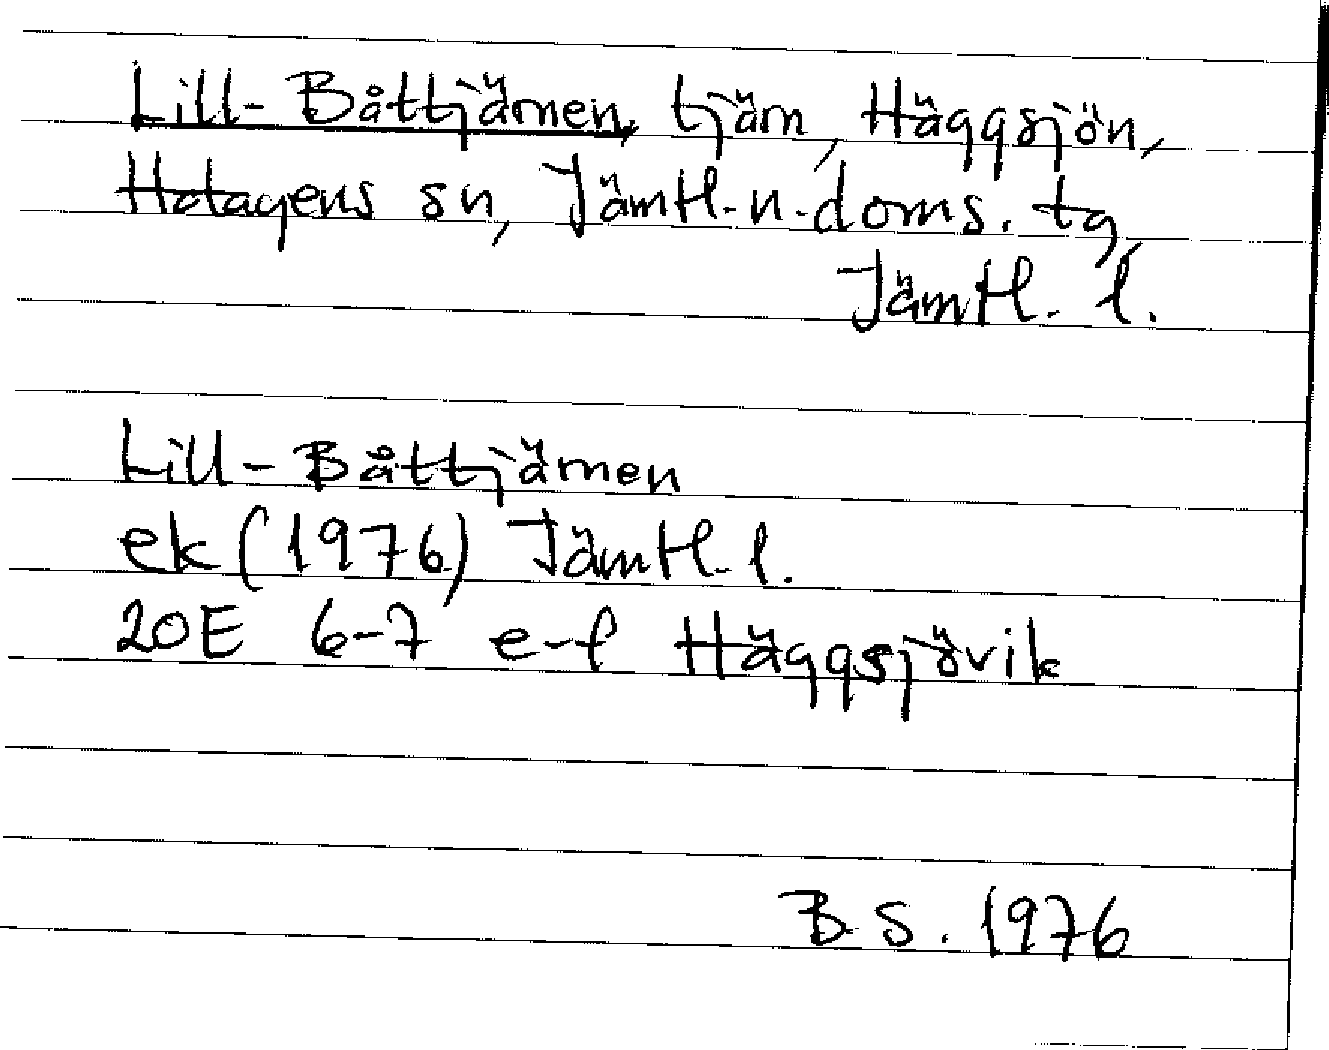 Lill-Båttjärnen, tjärn, Häggsjön,
Hotagens sn, Jämtl. n. doms. tg
Jämtl. l.
Lill-Båttjärnen
ek (1976) Jämtl. l.
20E 6-7 e-f Häggsjövik
B.S. 1976